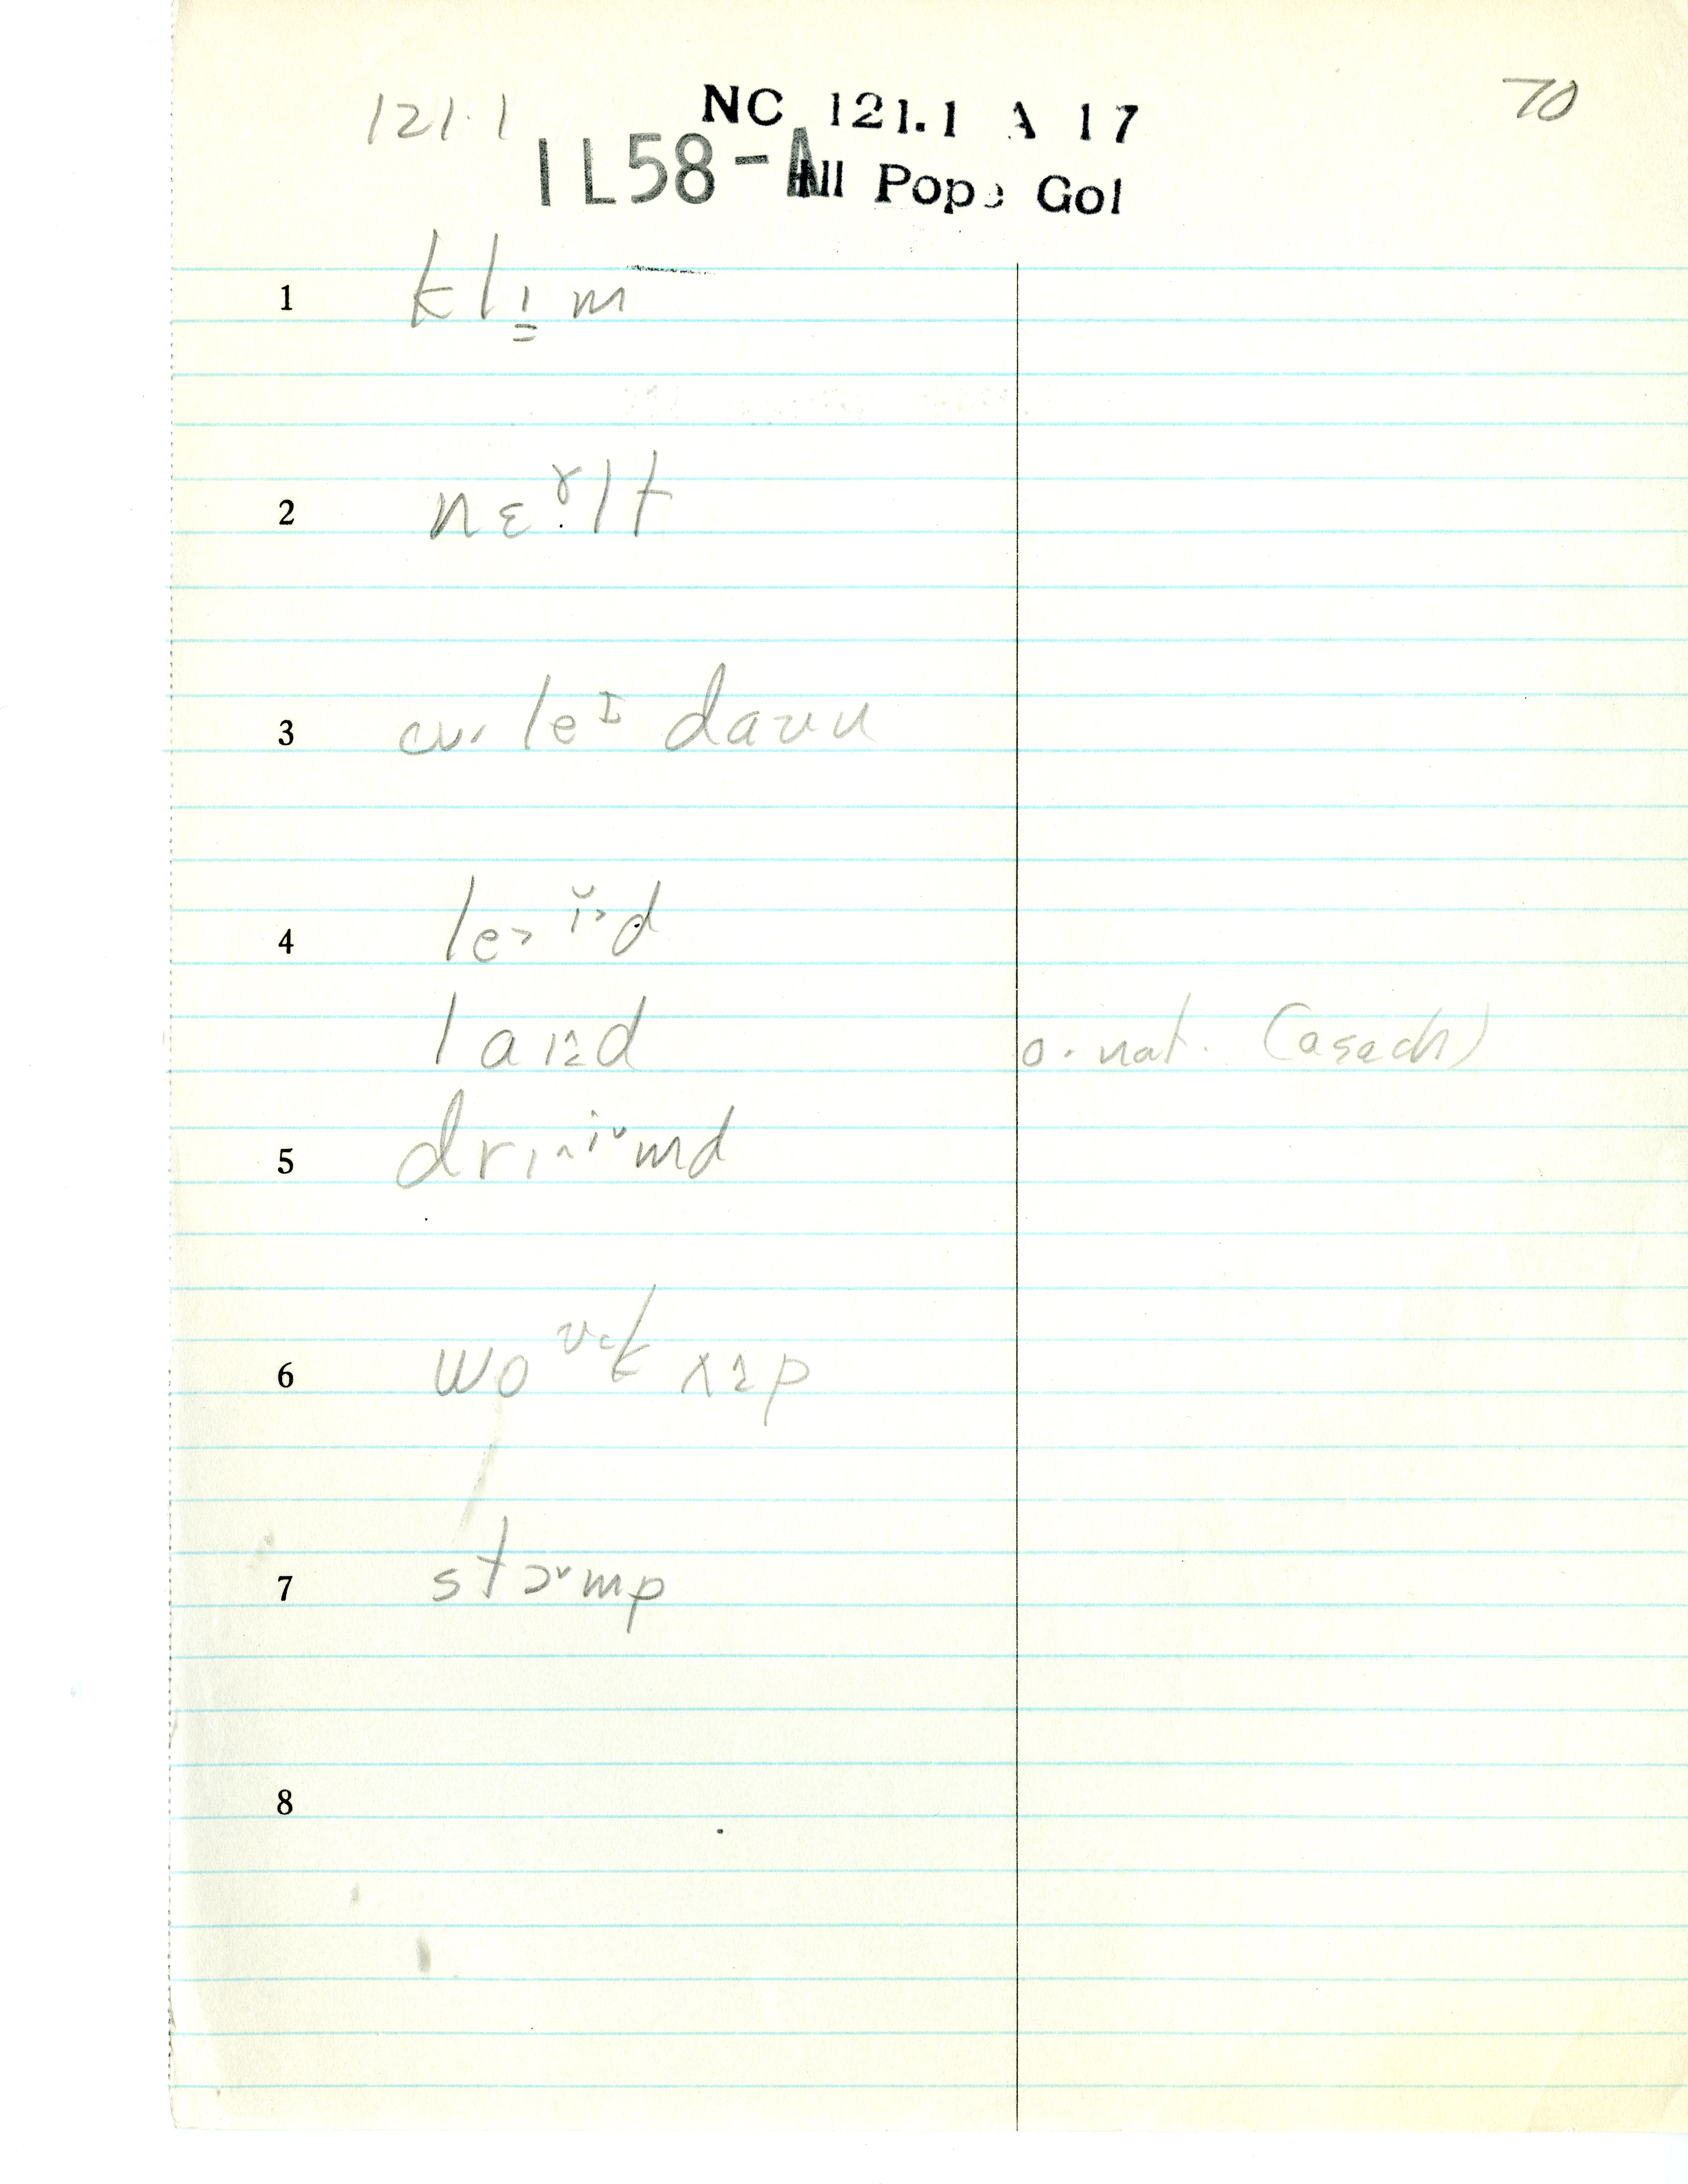 121.1 NC 121.1 A 17 70
IL58-A All Pope Gol
1 klɪ̳m
2 nɛɤ̣lt
3 leɪ daun
4 le˃ ɪ̆˃d
laɪd o. nat. (asach)
5 drɪ^iᵛmd
6 woʊ˂k ʌp
7 stɔᵛmp
8